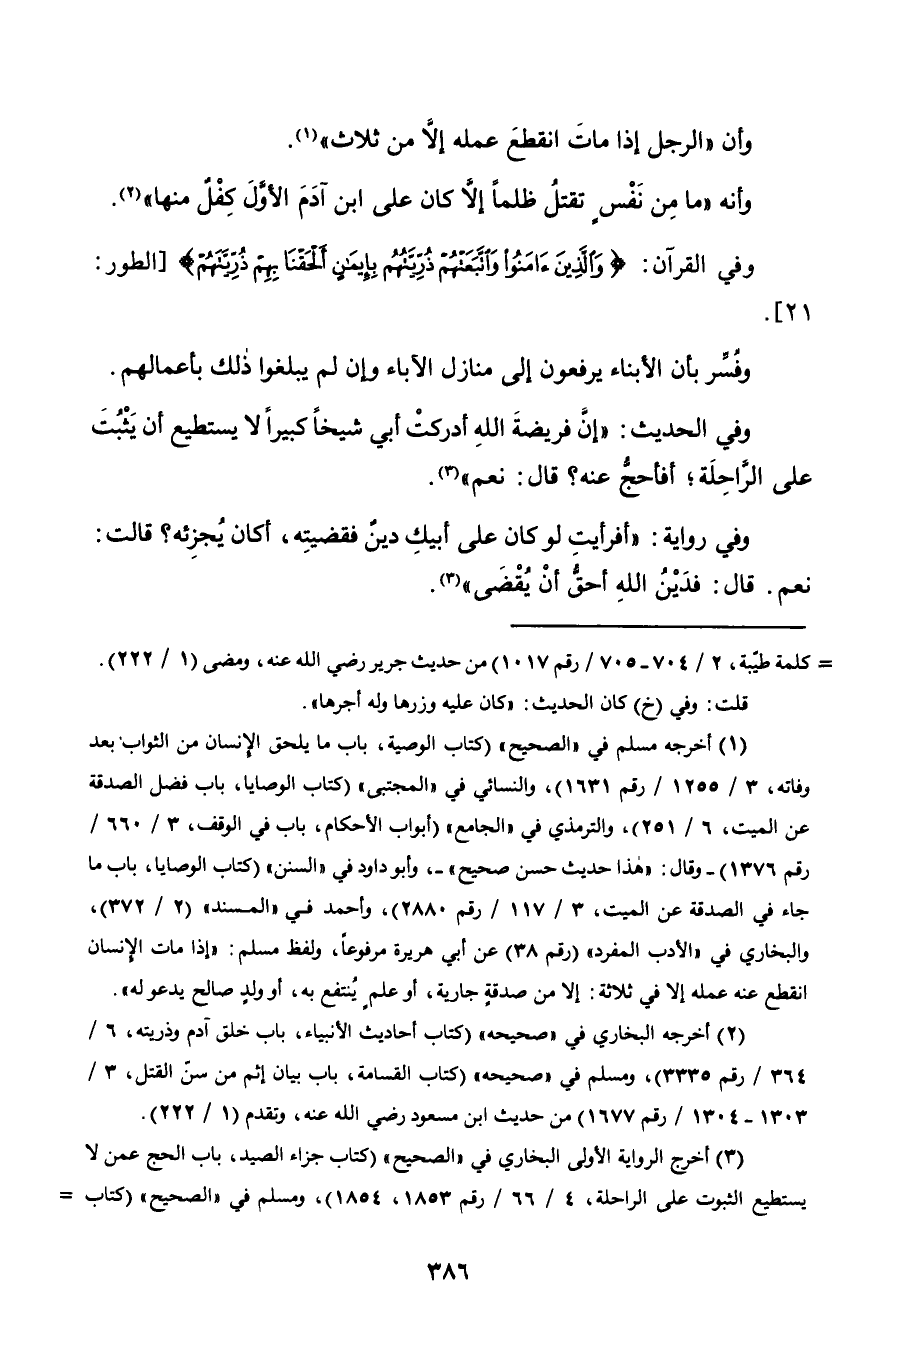 وأن «الرجل إذا ماتَ انقطعَ عمله إلَّا من ثلاث»(١).
وأنه «ما مِن نَفْسٍ تقتلُ ظلماً إلَّا كان على ابن آدَمَ الأوَّلَ كِفْلٌ منها»(٢).
وفي القرآن: ﴿وَٱلَّذِينَ ءَامَنُوا۟ وَٱتَّبَعَتْهُمْ ذُرِّيَّتُهُم بِإِيمَٰنٍ أَلْحَقْنَا بِهِمْ ذُرِّيَّتَهُمْ﴾ [الطور:
٢١].
وفُسِّر بأن الأبناء يرفعون إلى منازل الآباء وإن لم يبلغوا ذٰلك بأعمالهم.
وفي الحديث: «إنَّ فريضةَ اللهِ أدركتْ أبي شيخاً كبيراً لا يستطيع أن يَثْبُتَ
على الرَّاحِلَة؛ أفأحجُّ عنه؟ قال: نعم»(٣).
وفي رواية: «أفرأيتِ لو كان على أبيكِ دينٌ فقضيتِه، أكان يُجزئه؟ قالت:
نعم. قال: فدَيْنُ اللهِ أحقُّ أنْ يُقْضَى»(٣).
= كلمة طيّبة، ٢ / ٧٠٤ـ٧٠٥ / رقم ١٠١٧) من حديث جرير رضي الله عنه، ومضى (١ / ٢٢٢).
قلت: وفي (خ) كان الحديث: «كان عليه وزرها وله أجرها».
(١) أخرجه مسلم في «الصحيح» (كتاب الوصية، باب ما يلحق الإنسان من الثواب بعد
وفاته، ٣ / ١٢٥٥ / رقم ١٦٣١)، والنسائي في «المجتبى» (كتاب الوصايا، باب فضل الصدقة
عن الميت، ٦ / ٢٥١)، والترمذي في «الجامع» (أبواب الأحكام، باب في الوقف، ٣ / ٦٦٠ /
رقم ١٣٧٦) ـ وقال: «هٰذا حديث حسن صحيح» ـ، وأبو داود في «السنن» (كتاب الوصايا، باب ما
جاء في الصدقة عن الميت، ٣ / ١١٧ / رقم ٢٨٨٠)، وأحمد في «المسند» (٢ / ٣٧٢)،
والبخاري في «الأدب المفرد» (رقم ٣٨) عن أبي هريرة مرفوعاً، ولفظ مسلم: «إذا مات الإنسان
انقطع عنه عمله إلا في ثلاثة: إلا من صدقةٍ جارية، أو علمٍ يُنتفع به، أو ولدٍ صالح يدعو له».
(٢) أخرجه البخاري في «صحيحه» (كتاب أحاديث الأنبياء، باب خلق آدم وذريته، ٦ /
٣٦٤ / رقم ٣٣٣٥)، ومسلم في «صحيحه» (كتاب القسامة، باب بيان إثم من سنّ القتل، ٣ /
١٣٠٣ ـ ١٣٠٤ / رقم ١٦٧٧) من حديث ابن مسعود رضي الله عنه، وتقدم (١ / ٢٢٢).
(٣) أخرج الرواية الأولى البخاري في «الصحيح» (كتاب جزاء الصيد، باب الحج عمن لا
يستطيع الثبوت على الراحلة، ٤ / ٦٦ / رقم ١٨٥٣، ١٨٥٤)، ومسلم في «الصحيح» (كتاب =
٣٨٦